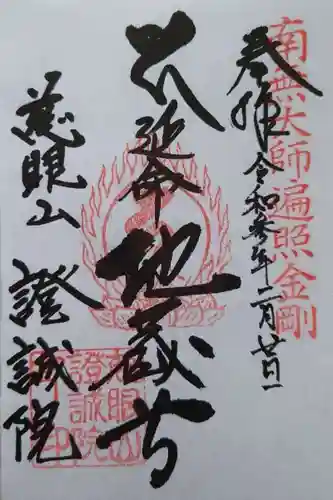 南無大師遍照金剛
奉拝 令和参年二月廿日
延命地蔵
慈眼山 證誠院
慈眼山
證誠院
印